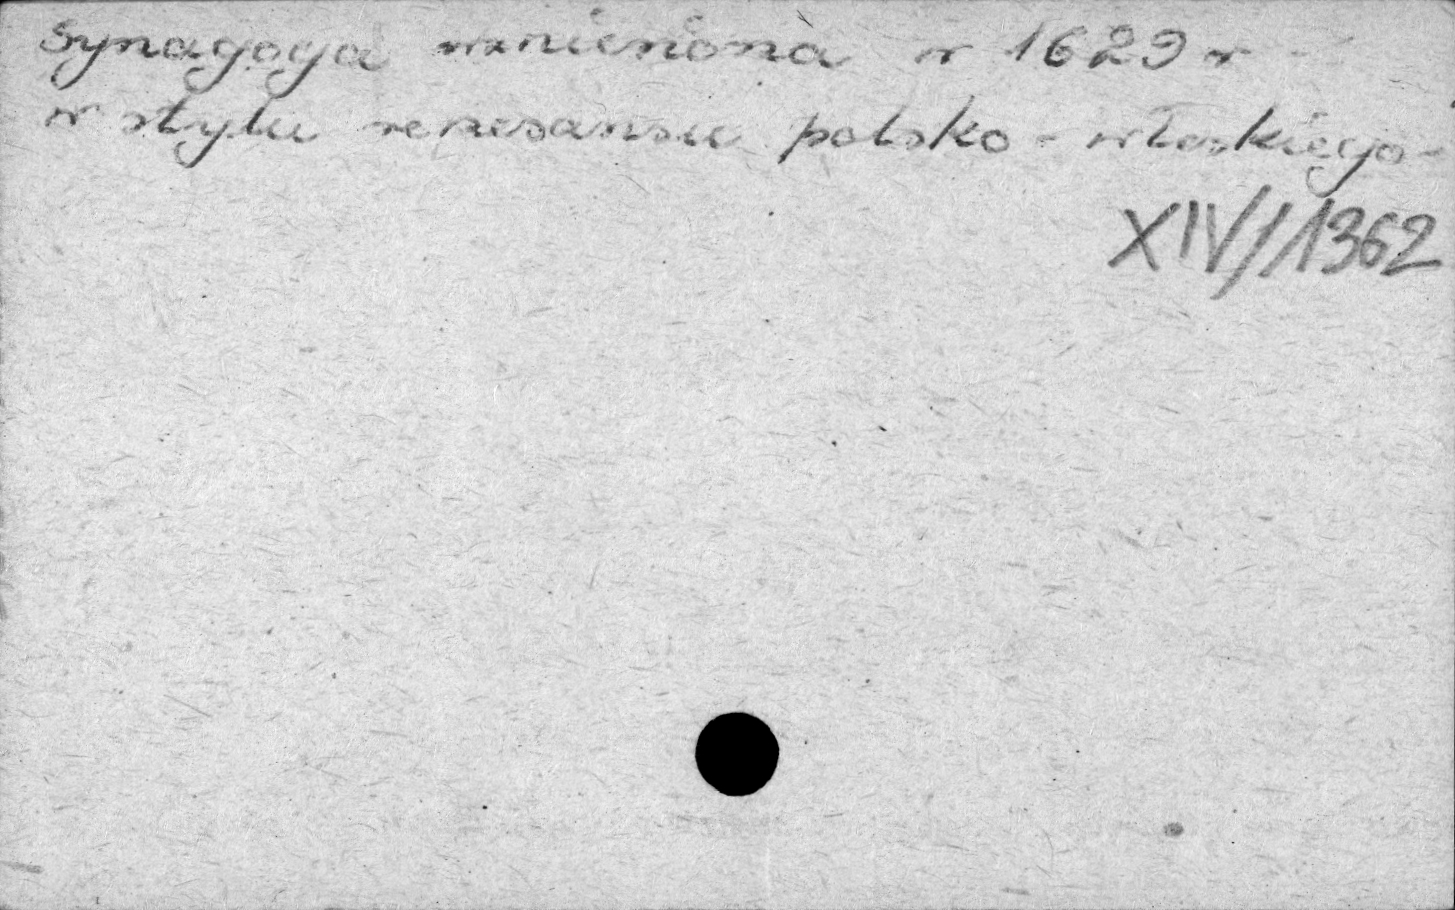 Synagoga wzniesiona w 1629 r -
w stylu renesansu polsko - włoskiego -
XIV/1362